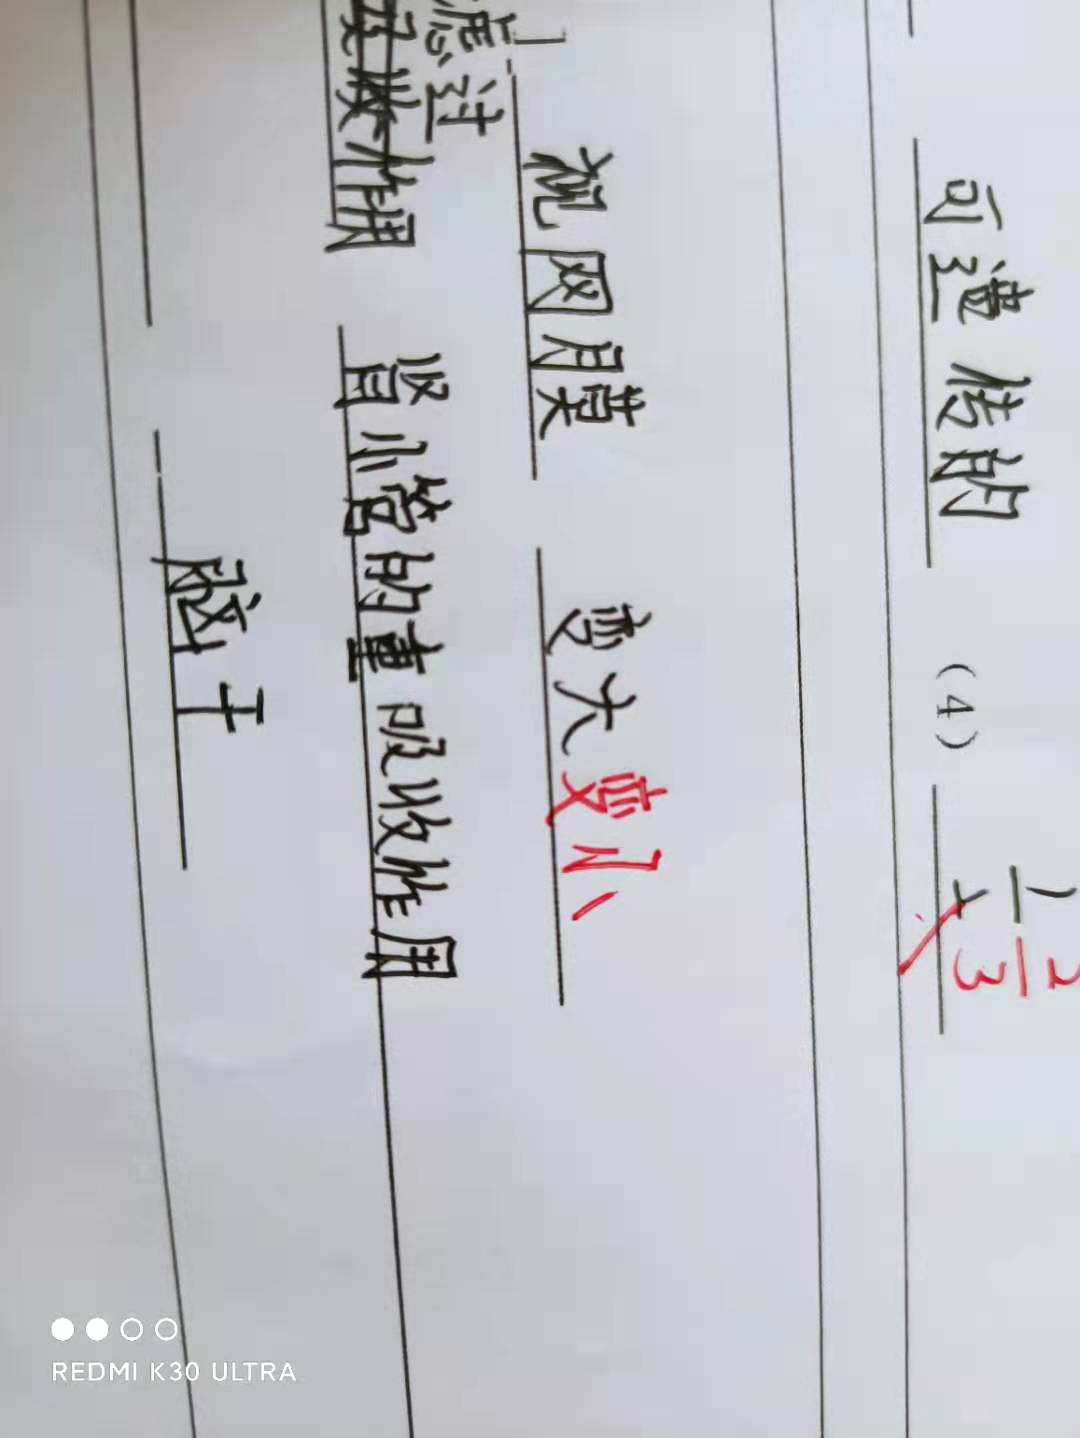 可遗传的 (4) 1/2 2/3
视网膜 变大 变小
滤过
吸收作用 肾小管的重吸收作用
脑干
REDMI K30 ULTRA